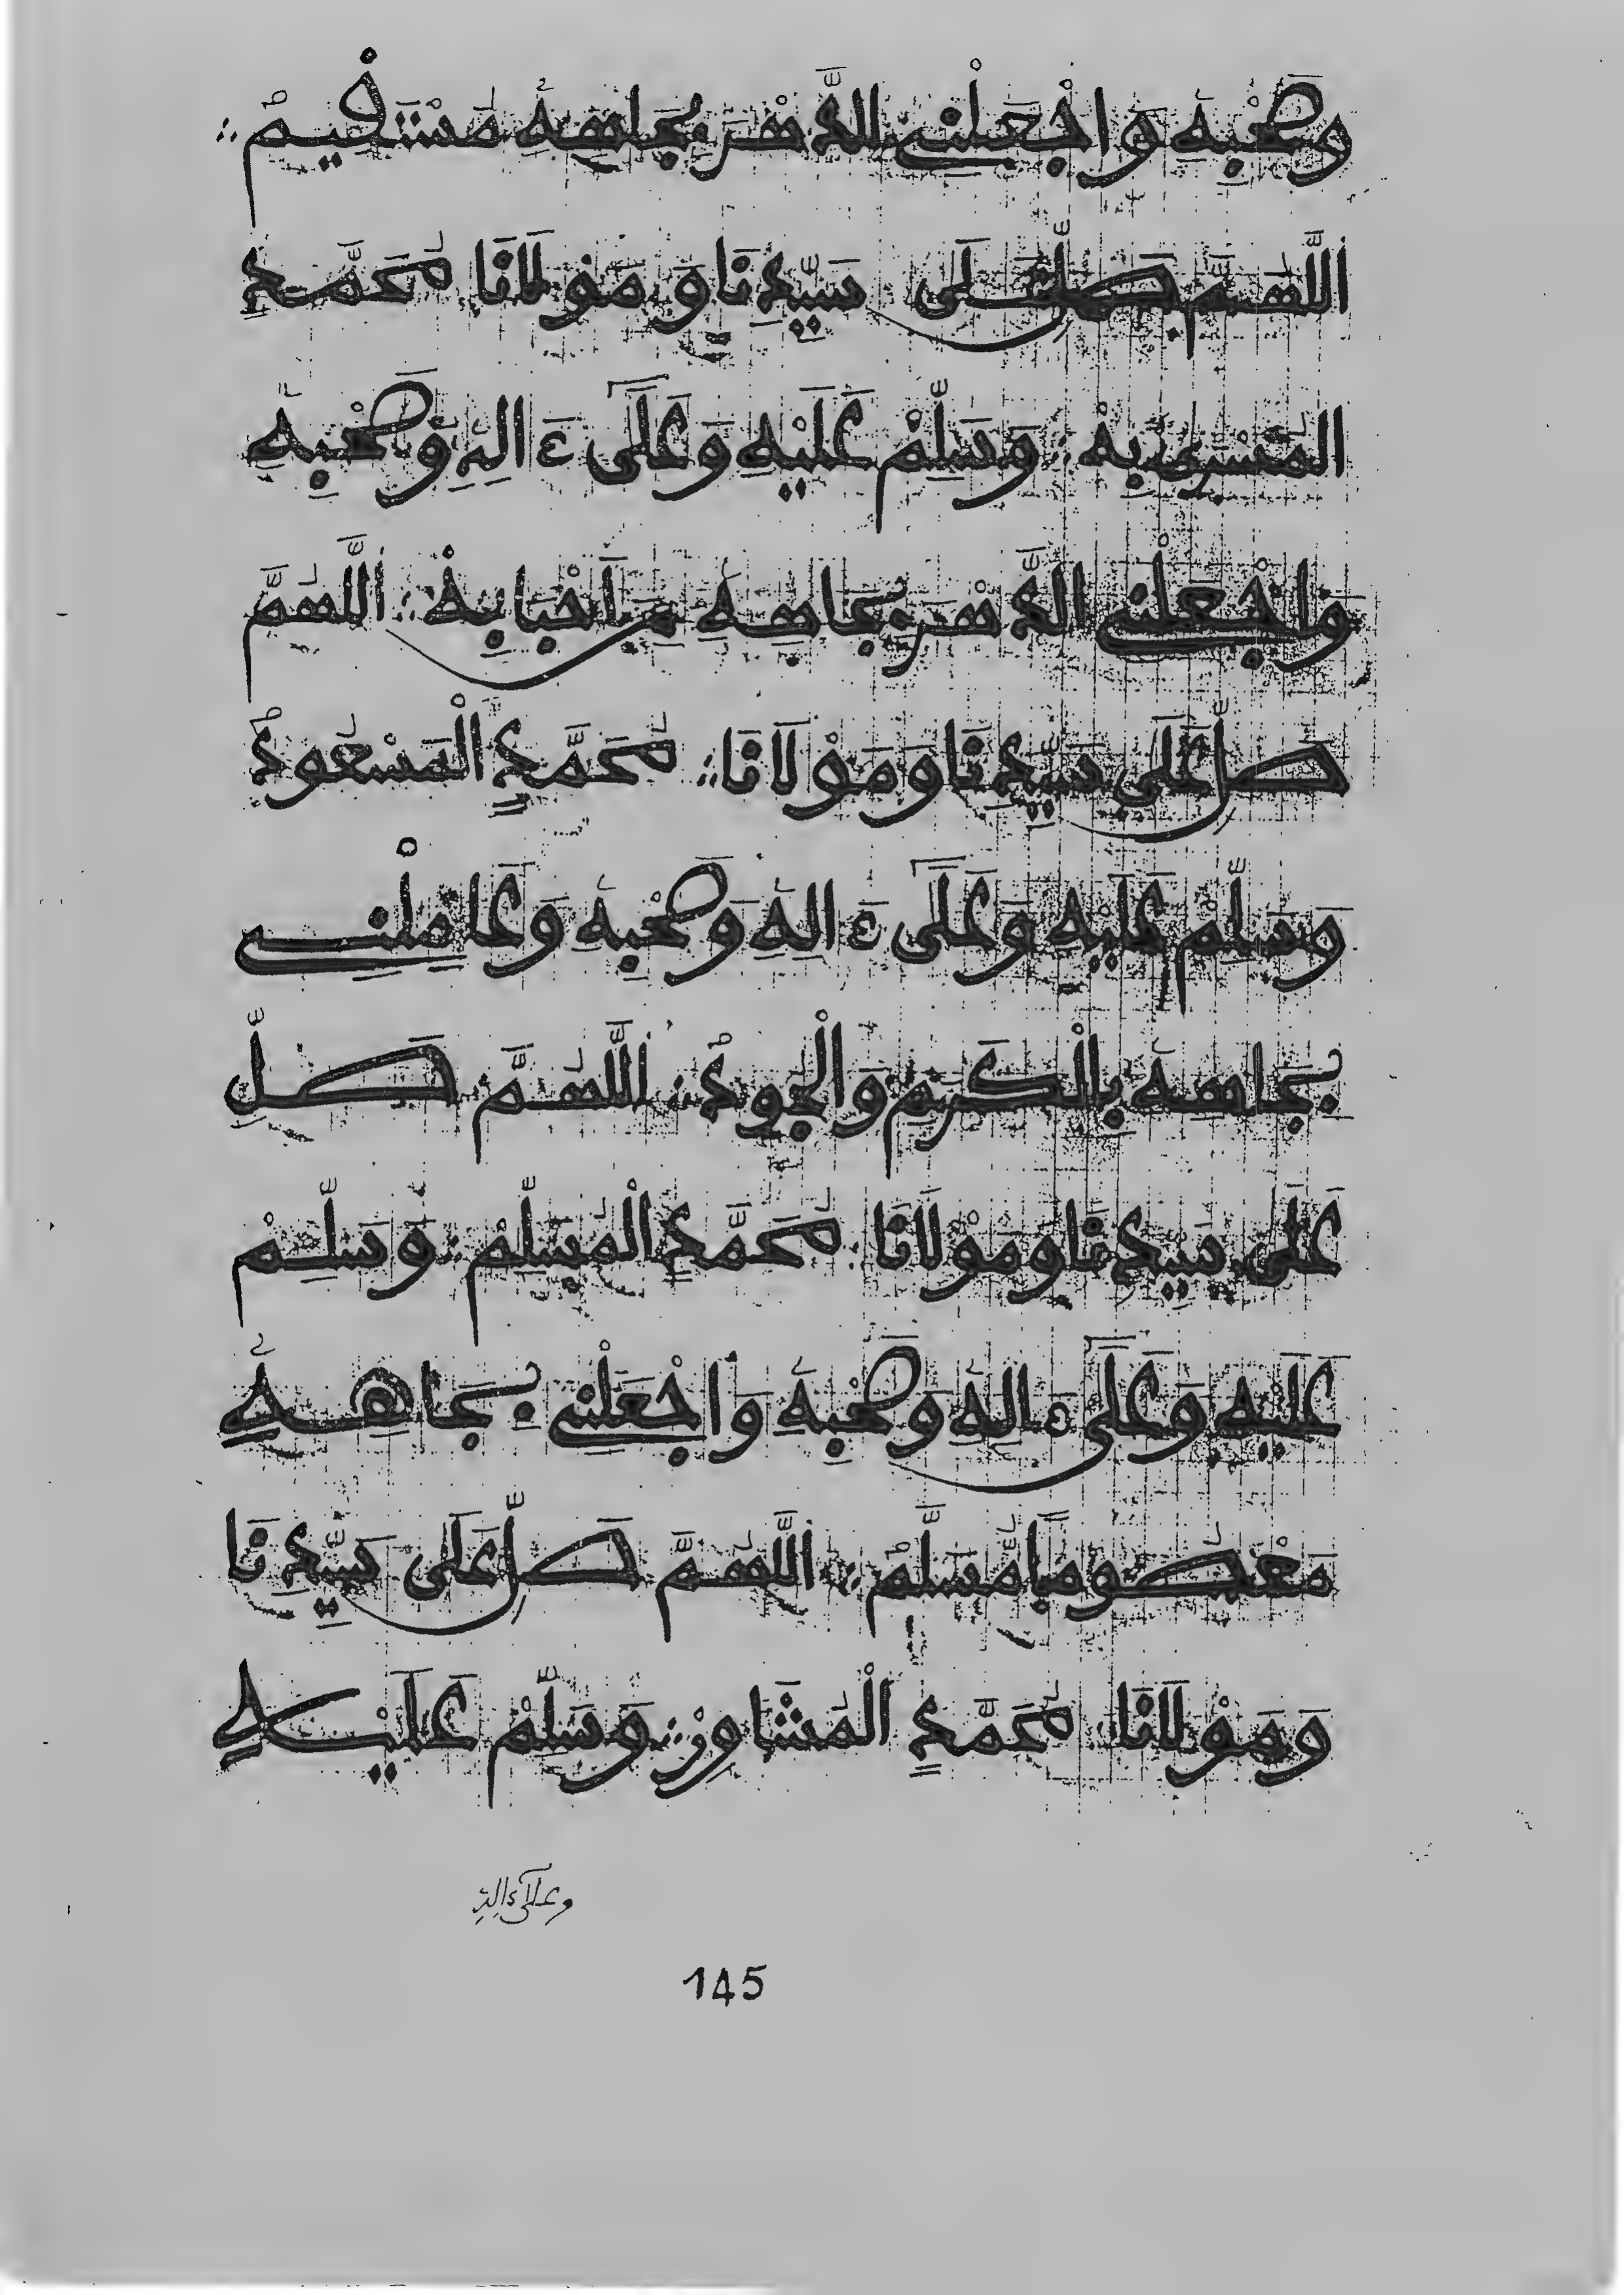 وَصَحْبِهِ وَاجْعَلْنِي الدَّهْرَ بِجَاهِهِ مُسْتَقِيمْ ؞
اَللَّهُمَّ صَلِّ عَلَى سَيِّدِنَا وَمَوْلَانَا مُحَمَّدٍ
الْمُسْرَى بِهْ ؞ وَسَلِّمْ عَلَيْهِ وَعَلَى ءَالِهِ وَصَحْبِهِ
وَاجْعَلْنِي الدَّهْرَ بِجَاهِهِ مِنَ احْبَابِهْ ؞ اَللَّهُمَّ
صَلِّ عَلَى سَيِّدِنَا وَمَوْلَانَا ؞ مُحَمَّدٍ الْمَسْعُودْ
وَسَلِّمْ عَلَيْهِ وَعَلَى ءَالِهِ وَصَحْبِهِ وَعَامِلْنِي
بِجَاهِهِ بِالْكَرَمِ وَالْجُودْ ؞ اَللَّهُمَّ صَلِّ
عَلَى سَيِّدِنَا وَمَوْلَانَا مُحَمَّدٍ الْمُسَلِّمْ ؞ وَسَلِّمْ
عَلَيْهِ وَعَلَى ءَالِهِ وَصَحْبِهِ وَاجْعَلْنِي بِجَاهِهِ
مَعْصُومًا مُّسَلَّمْ ؞ اَللَّهُمَّ صَلِّ عَلَى سَيِّدِنَا
وَمَوْلَانَا مُحَمَّدٍ الْمُشَاوِرْ ؞ وَسَلِّمْ عَلَيْهِ
وعلى ءاله
145